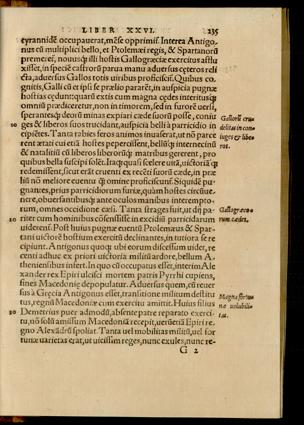 LIBER XXVI. 235
tyrannidē occupauerat, mēse opprimit. Interea Antigo-
nus cū multiplici bello, et Ptolemæi regis, & Spartanorū
premeret, nouusq́; illi hostis Gallogræciæ exercitus afflu
xisset, in speciē castrorū parua manu aduersus ceteros relicta,
aduersus Gallos totis uiribus proficiscitur. Quibus co-
gnitis, Galli cū et ipsi se prælio pararēt, in auspicia pugnæ
hostias cędunt: quarū extis cum magna cędes interitusq́;
omniū prædiceretur, non in timorem, sed in furorē uersi,
sperantesq́; deorū minas expiari cæde suorū posse, coniu
ges & liberos suos trucidant, auspicia belli à parricidio in
cipiētes. Tanta rabies feros animos inuaserat, ut nō parce
rent ætati cui etiā hostes pepercissent, bellūq́; internecinū
& nataliū cū liberis liberorūq́; matribus gererent, pro
quibus bella suscipi solēt. Itaq; quasi scelere uitā, uictoriāq́;
redemissent, sicut erant cruenti ex recēti suorū cæde, in præ
liū nō meliore euentu q̄ omine proficiscuntur. Siquidē pu-
gnantes, prius parricidiorum furiæ, quàm hostes circūue-
nere, obuersantibusq́; ante oculos manibus interempto-
rum, omnes occidione cæsi. Tanta strages fuit, ut dij pa-
riter cum hominibus cōsensisse in excidiū parricidarum
uiderentur. Post huius pugnæ euentū Ptolemæus & Spar-
tani uictorē hostium exercitū declinantes, in tutiora se re
cipiunt. Antigonus quoq; ubi eorum discessum uidet, re
centi adhuc ex priori uictoria militū ardore, bellum A-
theniensibus infert. In quo cū occupatus esset, interim Ale
xander rex Epiri ulcisci mortem patris Pyrrhi cupiens,
fines Macedoniæ depopulatur. Aduersus quem, cū reuer
sus à Græcia Antigonus esset, transitione militum destitu
tus, regnū Macedoniæ cum exercitu amittit. Huius filius
Demetrius puer admodū, absente patre reparato exerci-
tu, nō solū amissam Macedoniā recepit, uerū etiā Epiri re-
gno Alexādrū spoliat. Tanta uel mobilitas militū, uel for-
tunæ varietas erat, ut uicissim reges, nunc exules, nunc re-
G 2
Gallorū cru
delitas in con
iuges & libe
ros.
Gallogræco-
rum cædes.
Magna fortu
næ uolubili-
tas.
10
20
30